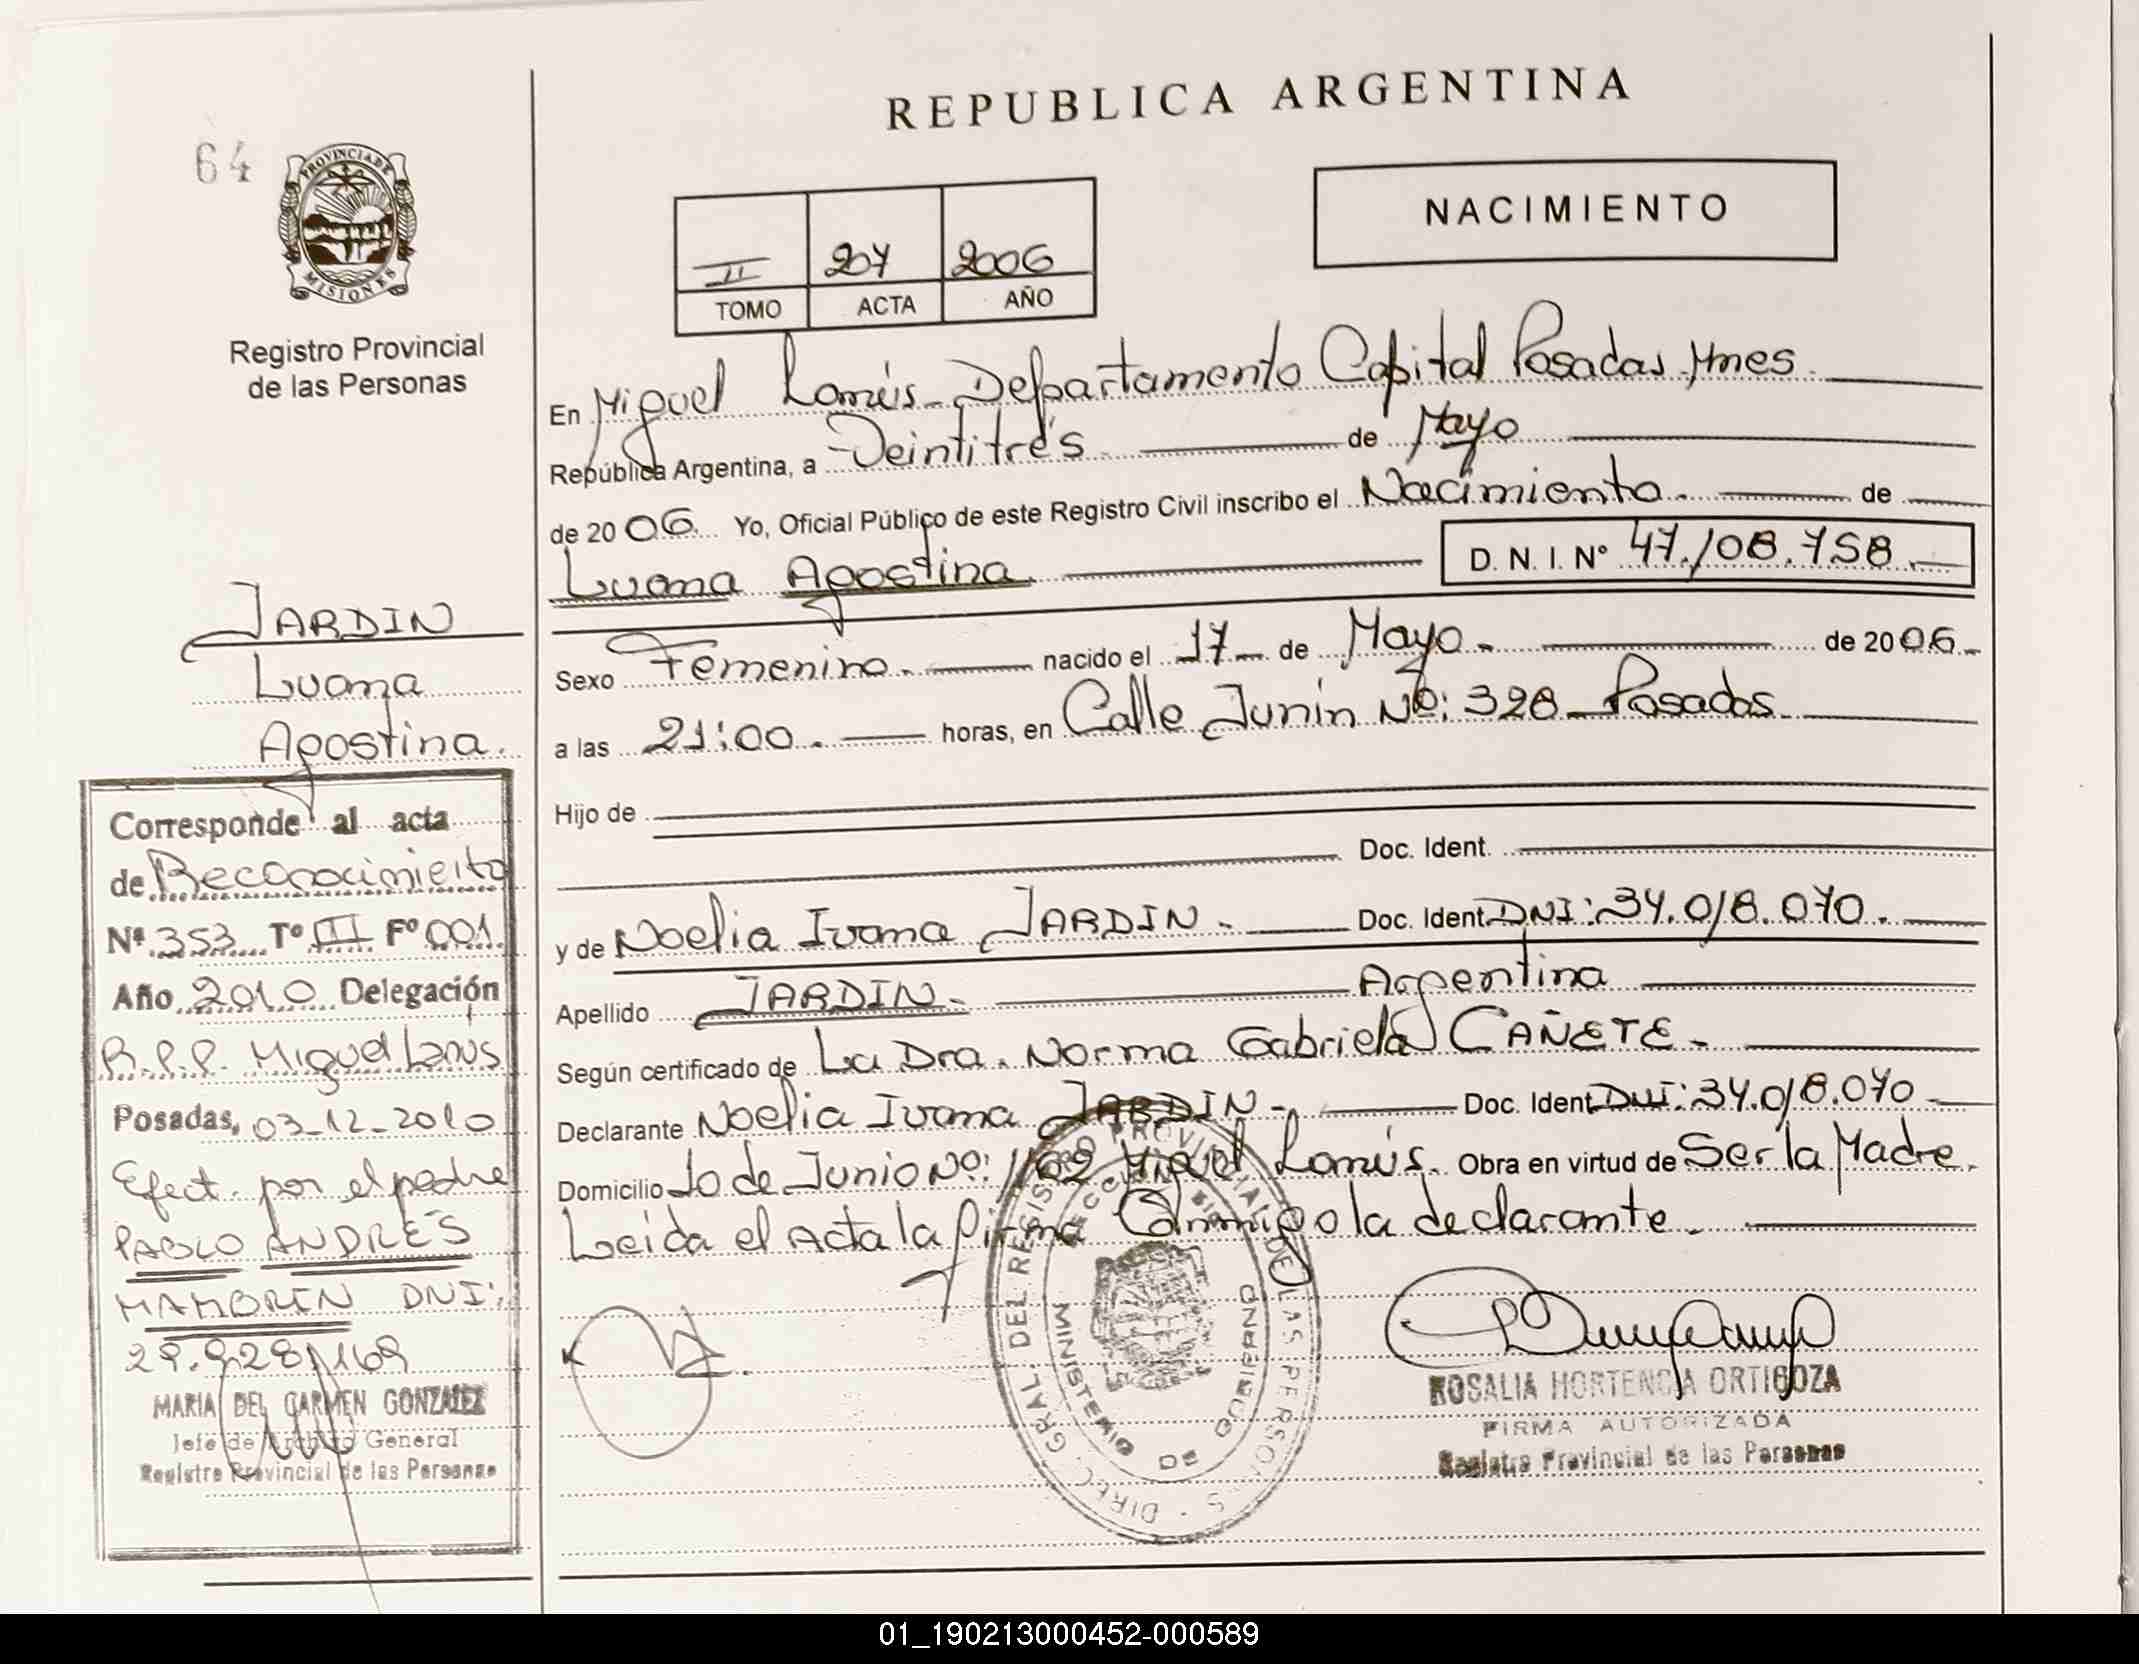 REPUBLICA ARGENTINA
64
PROVINCIA DE
MISIONES
Registro Provincial
de las Personas
NACIMIENTO
II 207 2006
TOMO ACTA AÑO
En Miguel Lanús - Departamento Capital Posadas Mnes
República Argentina, a Veintitrés de Mayo
de 2006. Yo, Oficial Público de este Registro Civil inscribo el Nacimiento. de
Luana Agostina
D. N. I. N° 47.108.758
Sexo Femenino. nacido el 17 de Mayo de 2006
a las 21:00. horas, en Calle Junín Nº: 328 Posadas
Hijo de
Doc. Ident.
y de Noelia Ivana JARDIN - Doc. Ident. DNI: 34.018.070.
Apellido JARDIN - Argentina
Según certificado de La Dra. Norma Gabriela CAÑETE -
Declarante Noelia Ivana JARDIN - Doc. Ident. DNI: 34.018.070
Domicilio 10 de Junio Nº: 1162 Miguel Lanús. Obra en virtud de Ser la Madre.
Leída el Acta la firma Conmigo la declarante.
JARDIN
Luana
Agostina.
Corresponde al acta
de Reconocimiento
Nº 353 Tº III Fº 001
Año 2010 Delegación
R.P.P. Miguel Lanús
Posadas, 03-12-2010
Efect. por el padre
PABLO ANDRÉS
MAMBRIN DNI:
29.928.169
MARIA DEL CARMEN GONZALEZ
Jefe de Archivo General
Registro Provincial de las Personas
DIREC. GRAL. DEL REGISTRO PROVINCIAL DE LAS PERSONAS
MINISTERIO DE GOBIERNO
ROSALIA HORTENCIA ORTIGOZA
FIRMA AUTORIZADA
Registro Provincial de las Personas
01_190213000452-000589